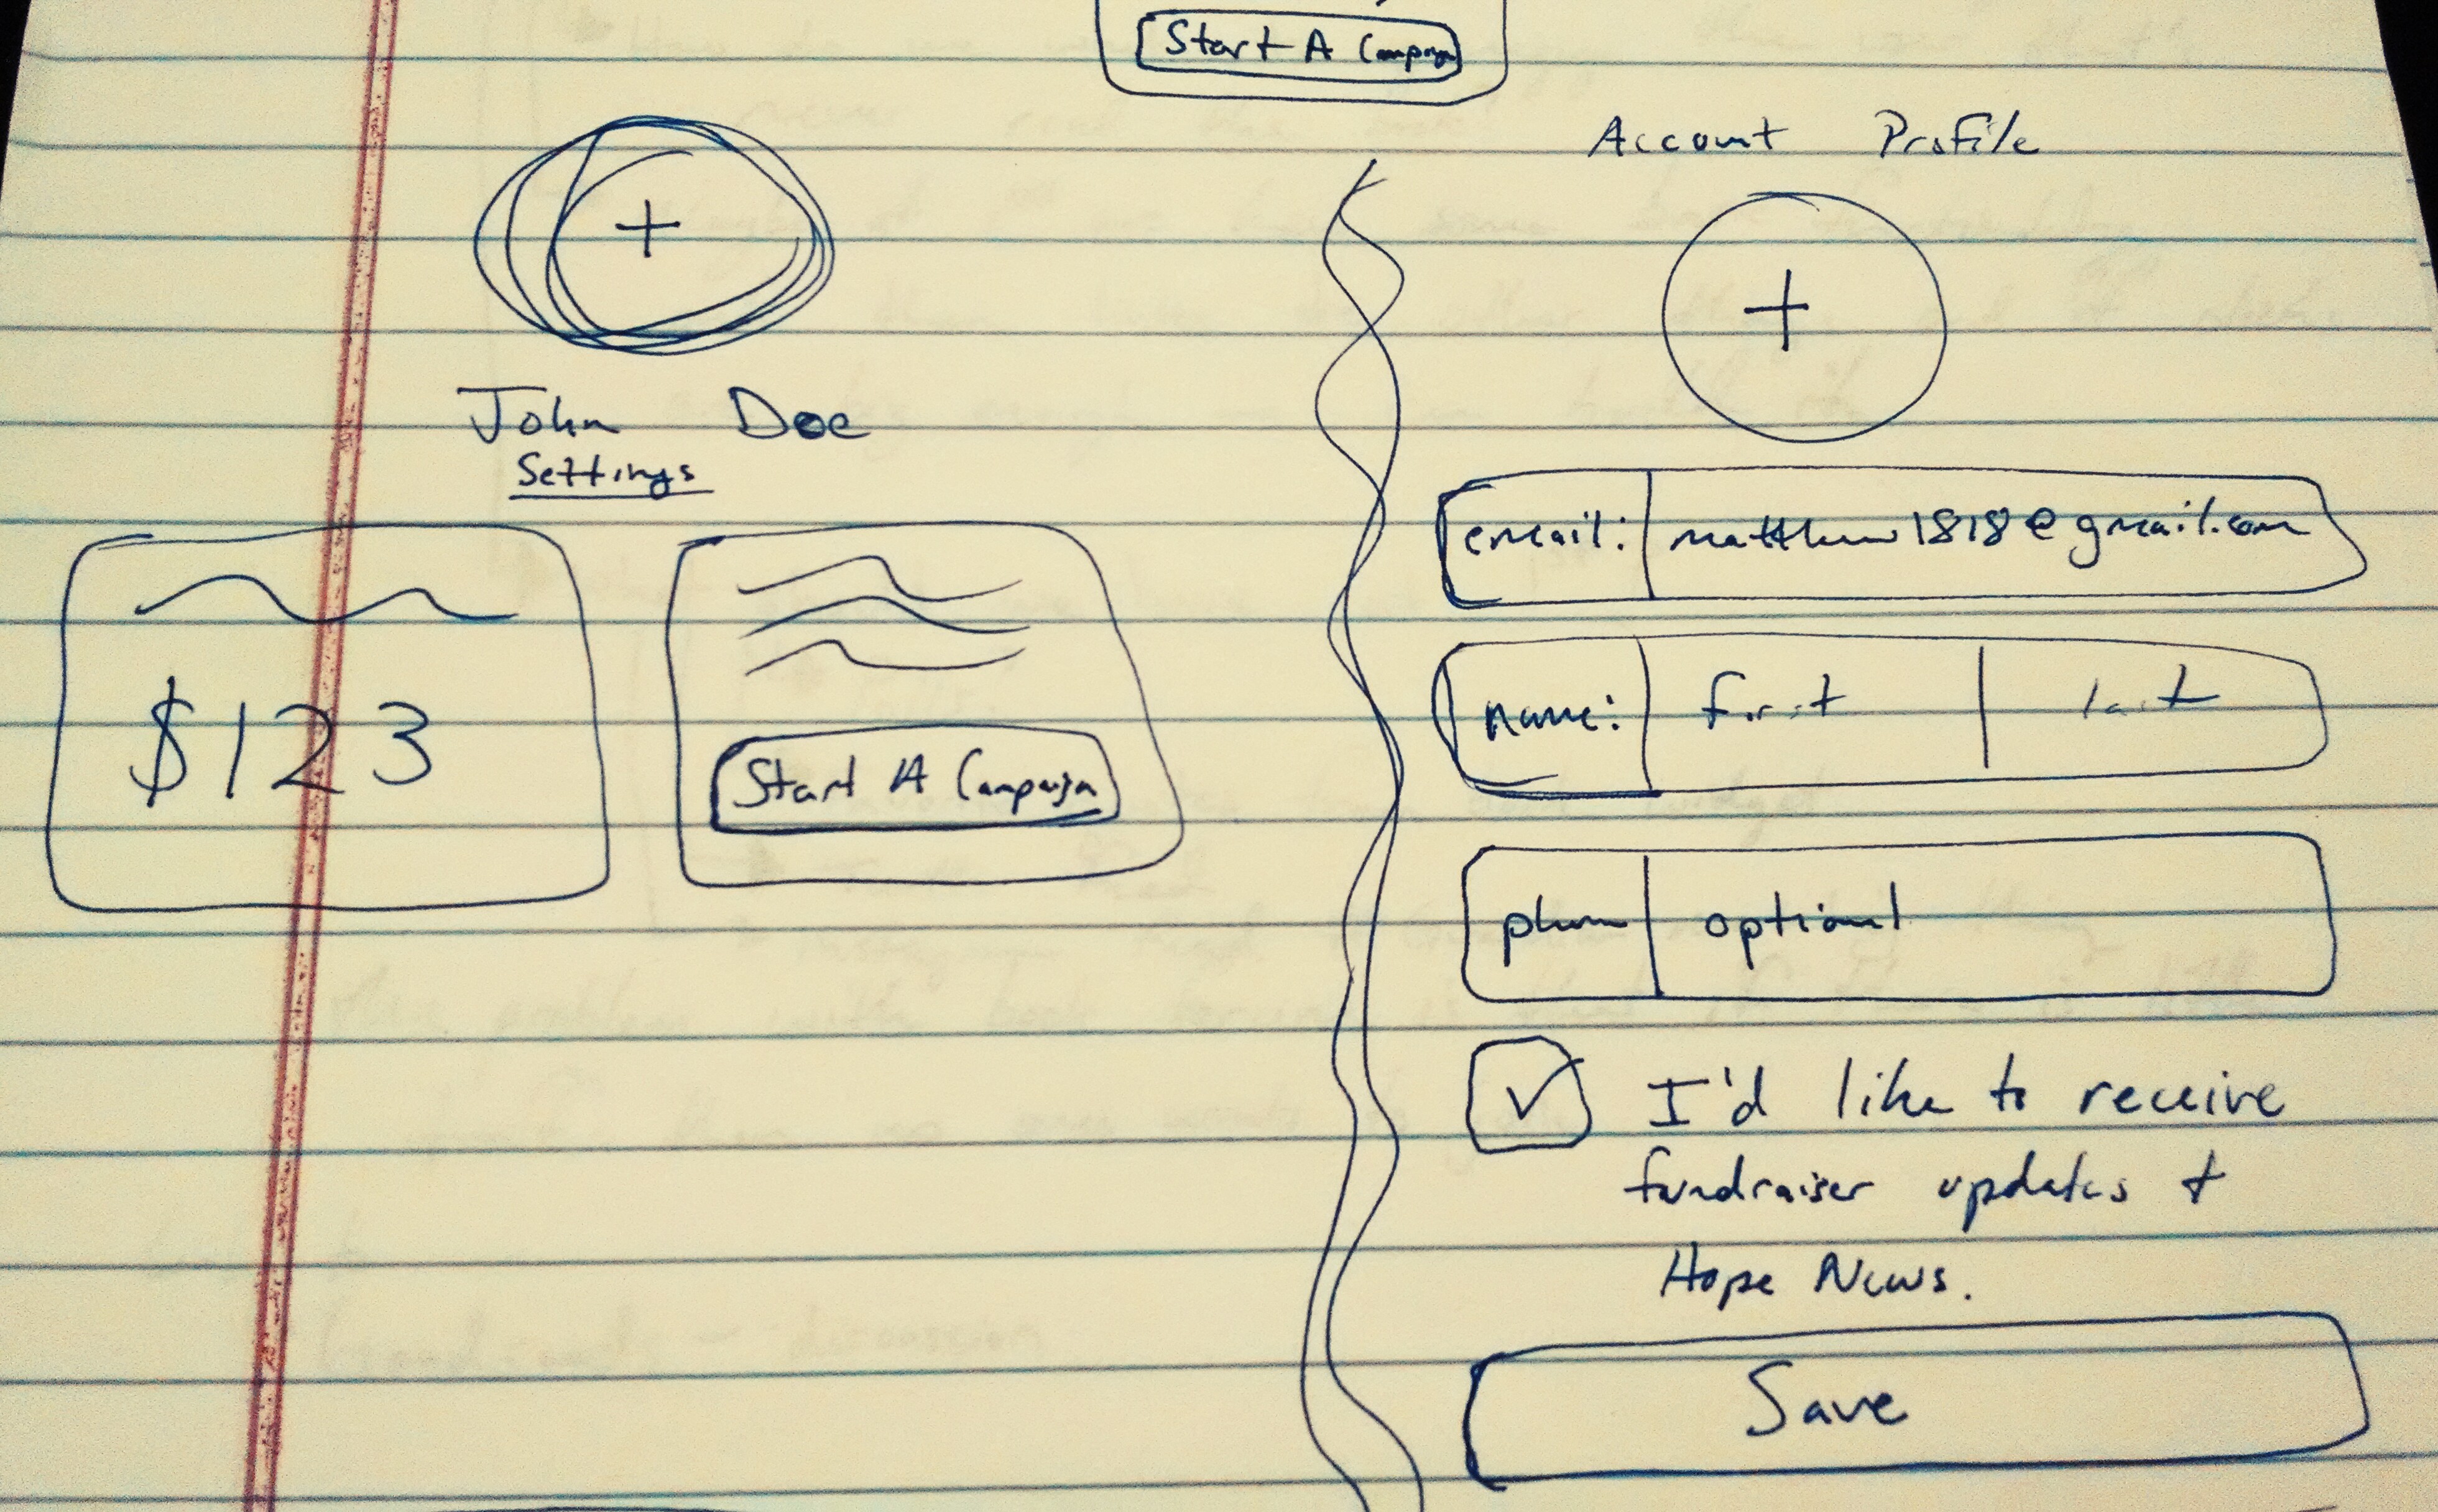 Start A Campaign
John Doe
Settings
$123
Start A Campaign
Account Profile
+
+
email: matthew1818@gmail.com
name: first last
phone optional
I'd like to receive
fundraiser updates +
Hope News.
Save